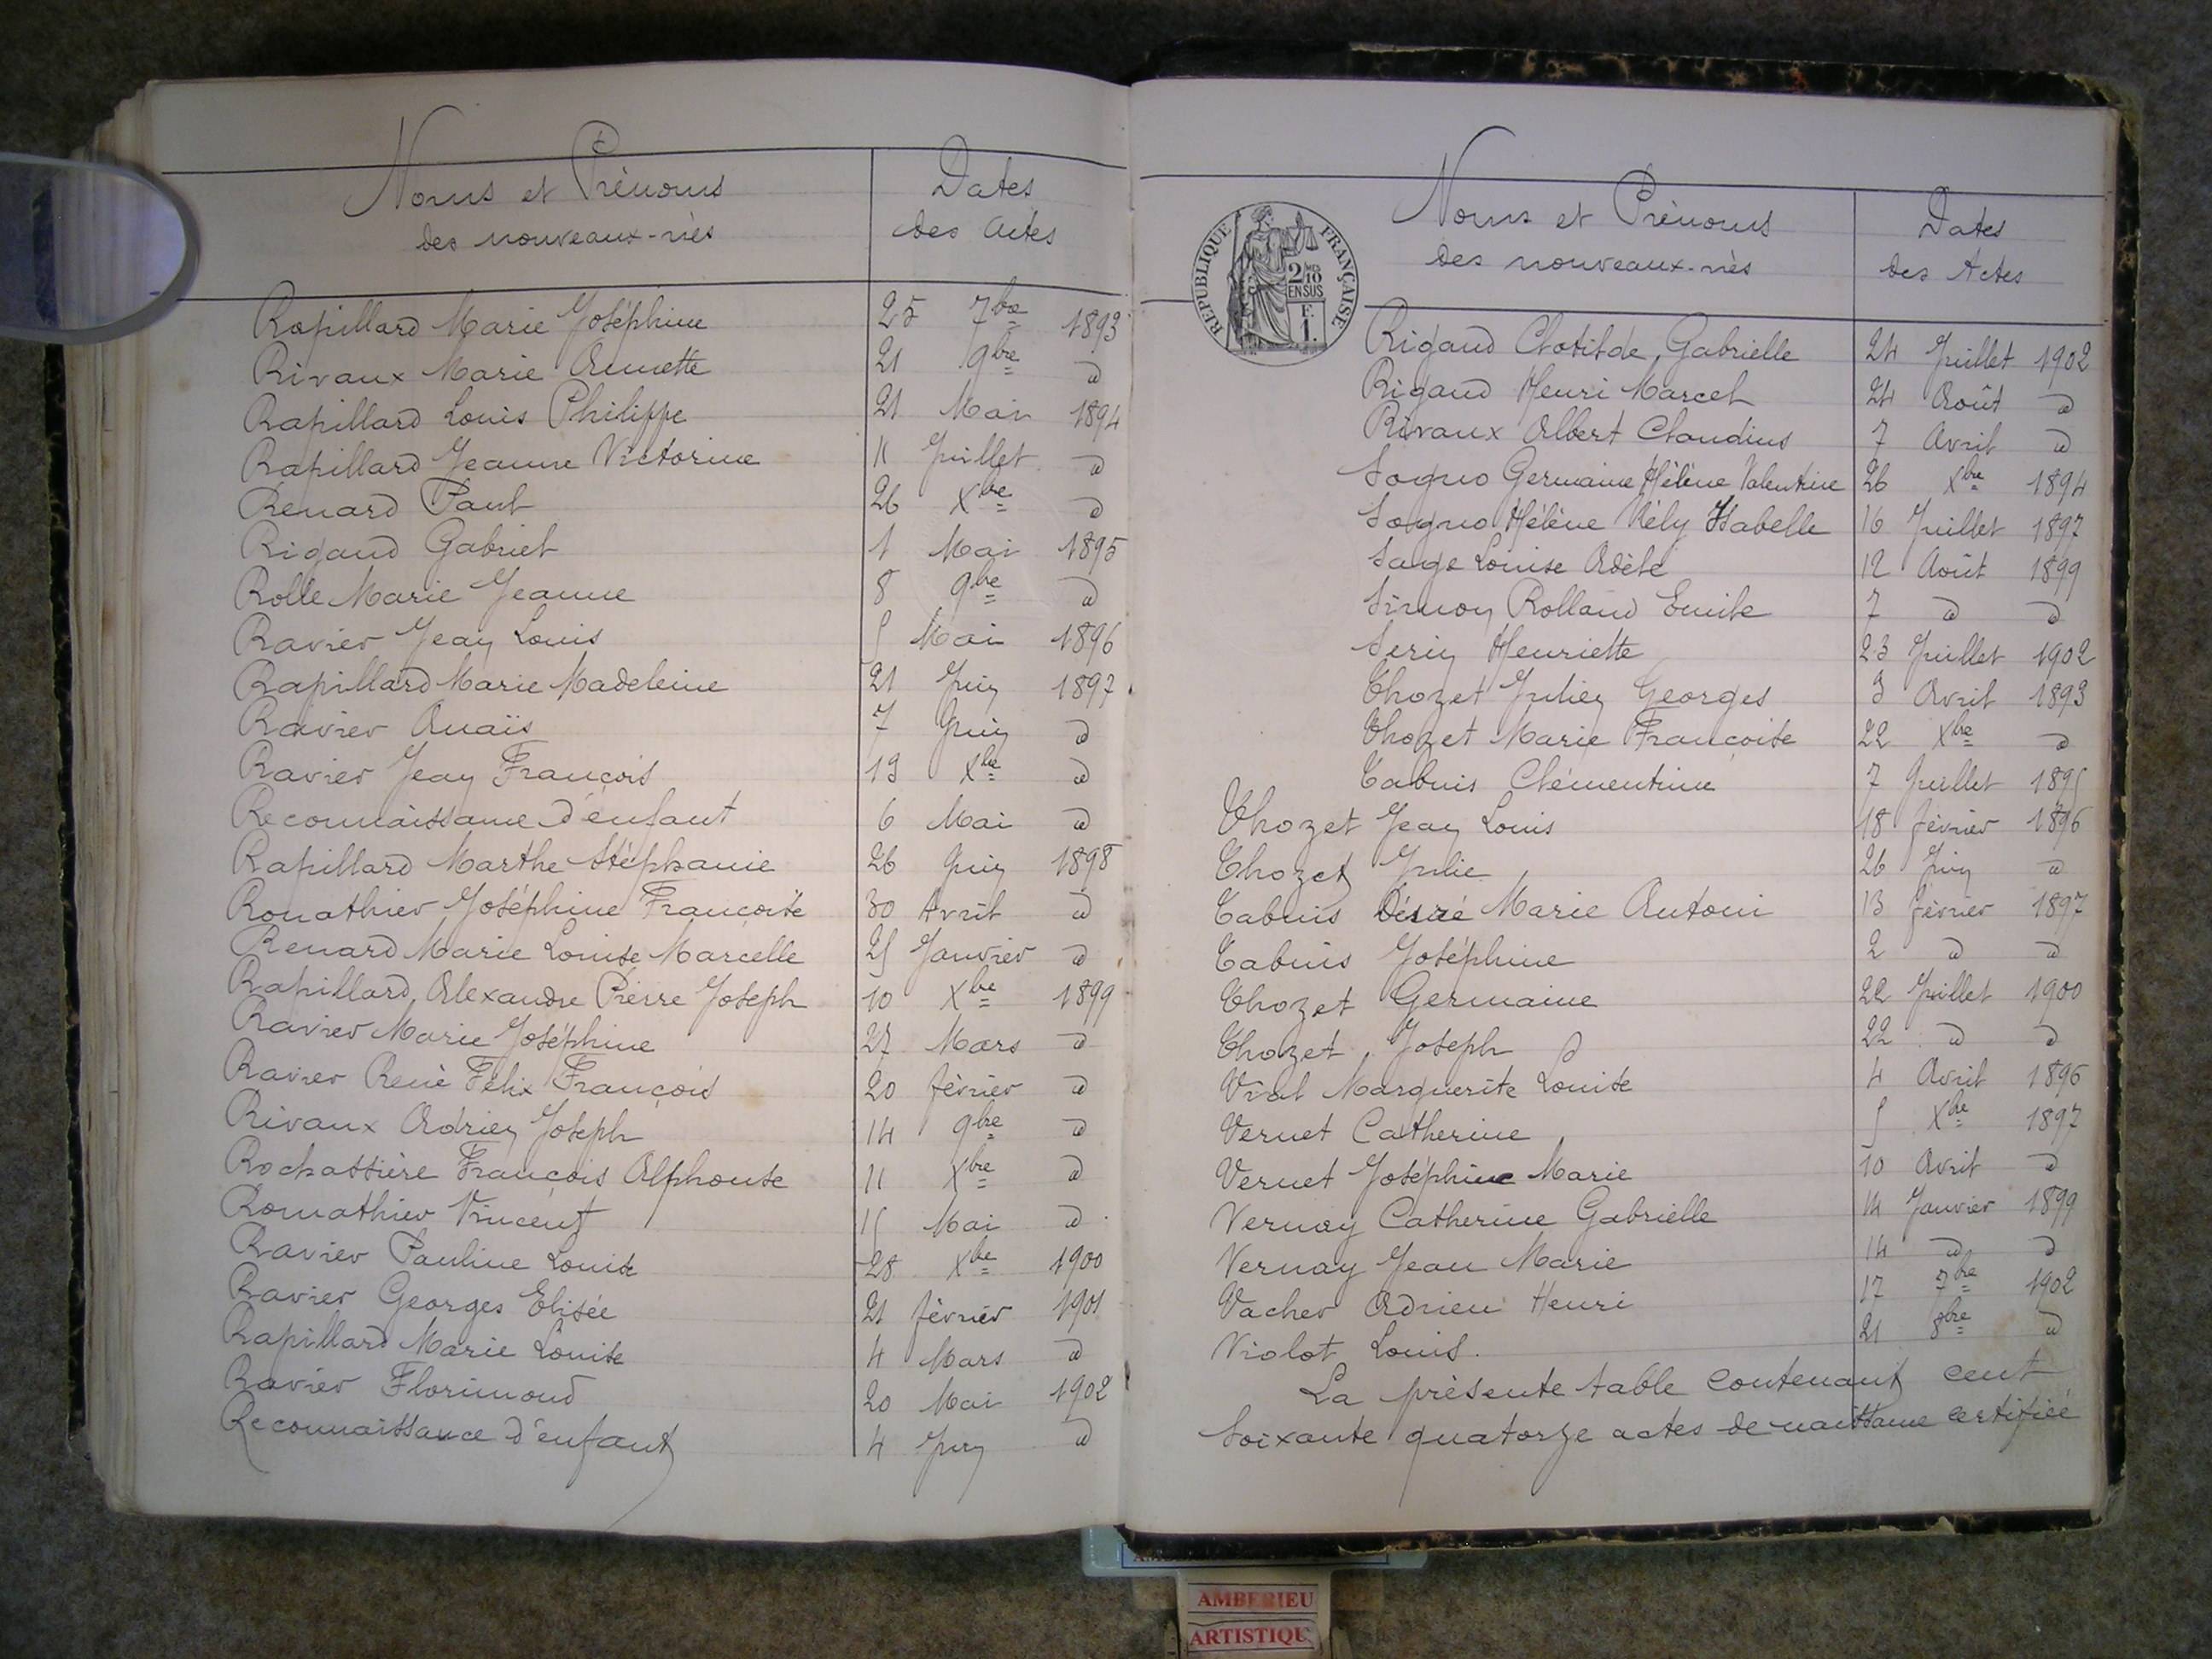 Noms et Prénoms
des nouveaux-nés
Dates
des actes
Rapillard Marie Joséphine 25 7bre 1893
Rivaux Marie Annette 21 9bre d
Rapillard Louis Philippe 21 Mai 1894
Rapillard Jeanne Victorine 11 Juillet d
Renard Paul 26 Xbre d
Rigaud Gabriel 1 Mai 1895
Rolle Marie Jeanne 8 9bre d
Ravier Jean Louis 5 Mai 1896
Rapillard Marie Madeleine 21 Juin 1897
Ravier Anaïs 7 Juin d
Ravier Jean François 19 Xbre d
Reconnaissance d'enfant 6 Mai d
Rapillard Marthe Stéphanie 26 Juin 1898
Romathier Joséphine Françoise 30 Avril d
Renard Marie Louise Marcelle 25 Janvier d
Rapillard, Alexandre Pierre Joseph 10 Xbre 1899
Ravier Marie Joséphine 27 Mars d
Ravier René Félix François 20 février d
Rivaux Adrien Joseph 14 9bre d
Rochassière François Alphonse 11 Xbre d
Romathier Vincent 15 Mai d
Ravier Pauline Louise 28 Xbre 1900
Ravier Georges Elisée 21 février 1901
Rapillard Marie Louise 4 Mars d
Ravier Florimond 20 Mai 1902
Reconnaissance d'enfant 4 Juin d
REPUBLIQUE FRANÇAISE
2/10MES
EN SUS
F.
1.
Noms et Prénoms
des nouveaux-nés
Dates
des Actes
Rigaud Clotilde, Gabrielle 24 Juillet 1902
Rigaud Henri Marcel 24 Août d
Rivaux Albert Claudius 7 Avril d
Sogno Germaine Hélène Valentine 26 Xbre 1894
Sogno Hélène Nély Isabelle 16 Juillet 1897
Sage Louise Adèle 12 Août 1899
Simon Rolland Emile 7 d d
Serin Henriette 23 Juillet 1902
Thozet Julien Georges 3 Avril 1893
Thozet Marie Françoise 22 Xbre d
Tabuis Clémentine 7 Juillet 1895
Thozet Jean Louis 18 février 1896
Thozet Julie 26 Juin d
Tabuis Désiré Marie Antoni 13 février 1897
Tabuis Joséphine 2 d d
Thozet Germaine 22 Juillet 1900
Thozet, Joseph d 22 d d
Vial Marguerite Louise 4 Avril 1896
Vernet Catherine 5 Xbre 1897
Vernet Joséphine Marie 10 Avril d
Vernay Catherine Gabrielle 14 Janvier 1899
Vernay Jean Marie 14 d d
Vacher Adrien Henri 17 7bre 1902
Violot Louis. 21 8bre d
La présente table contenant cent
soixante quatorze actes de naissance certifiée
AMBERIEU
ARTISTIQU